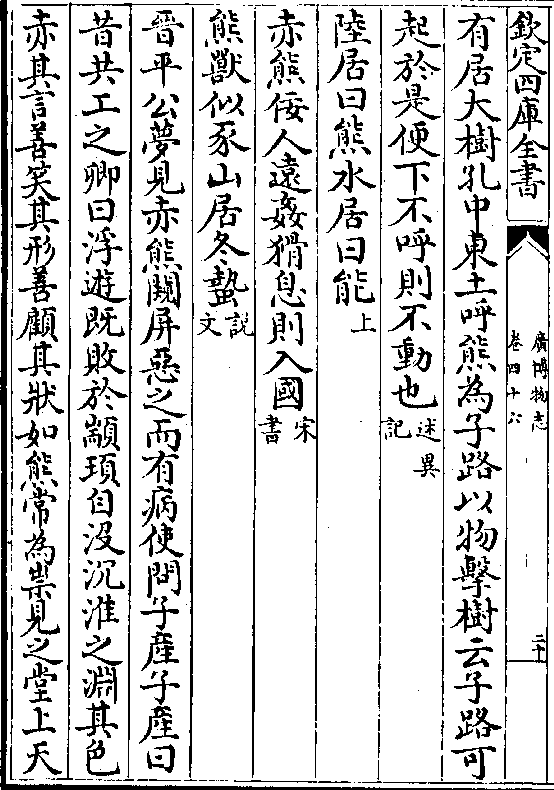 欽定四庫全書
廣博物志
卷四十六
二十
有居大樹孔中東土呼熊為子路以物擊樹云子路可
起於是便下不呼則不動也述異記
陸居曰熊水居曰能上
赤熊佞人遠姦猾息則入國宋書
熊獸似豕山居冬蟄說文
晉平公夢見赤熊闚屏惡之而有病使問子產子產曰
昔共工之卿曰浮遊既敗於顓頊自沒沉淮之淵其色
赤其言善笑其形善顧其狀如熊常為祟見之堂上天